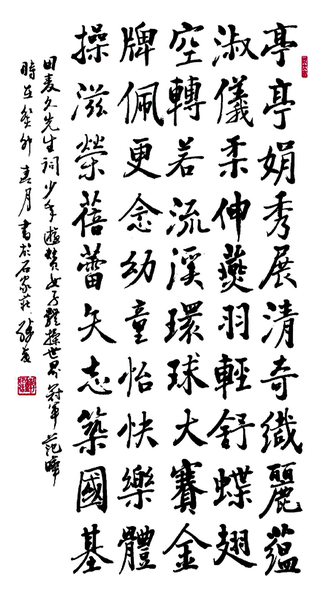 亭亭娟秀展清奇織麗蘊
淑儀柔伸燕羽輕舒蝶翅
空轉若流溪環球大賽金
牌佩更念幼童怡快樂體
操滋榮蓓蕾矢志築國基
田麦久先生词少年游赞女子體操世界冠军范晔
時在癸卯春月書於石家莊